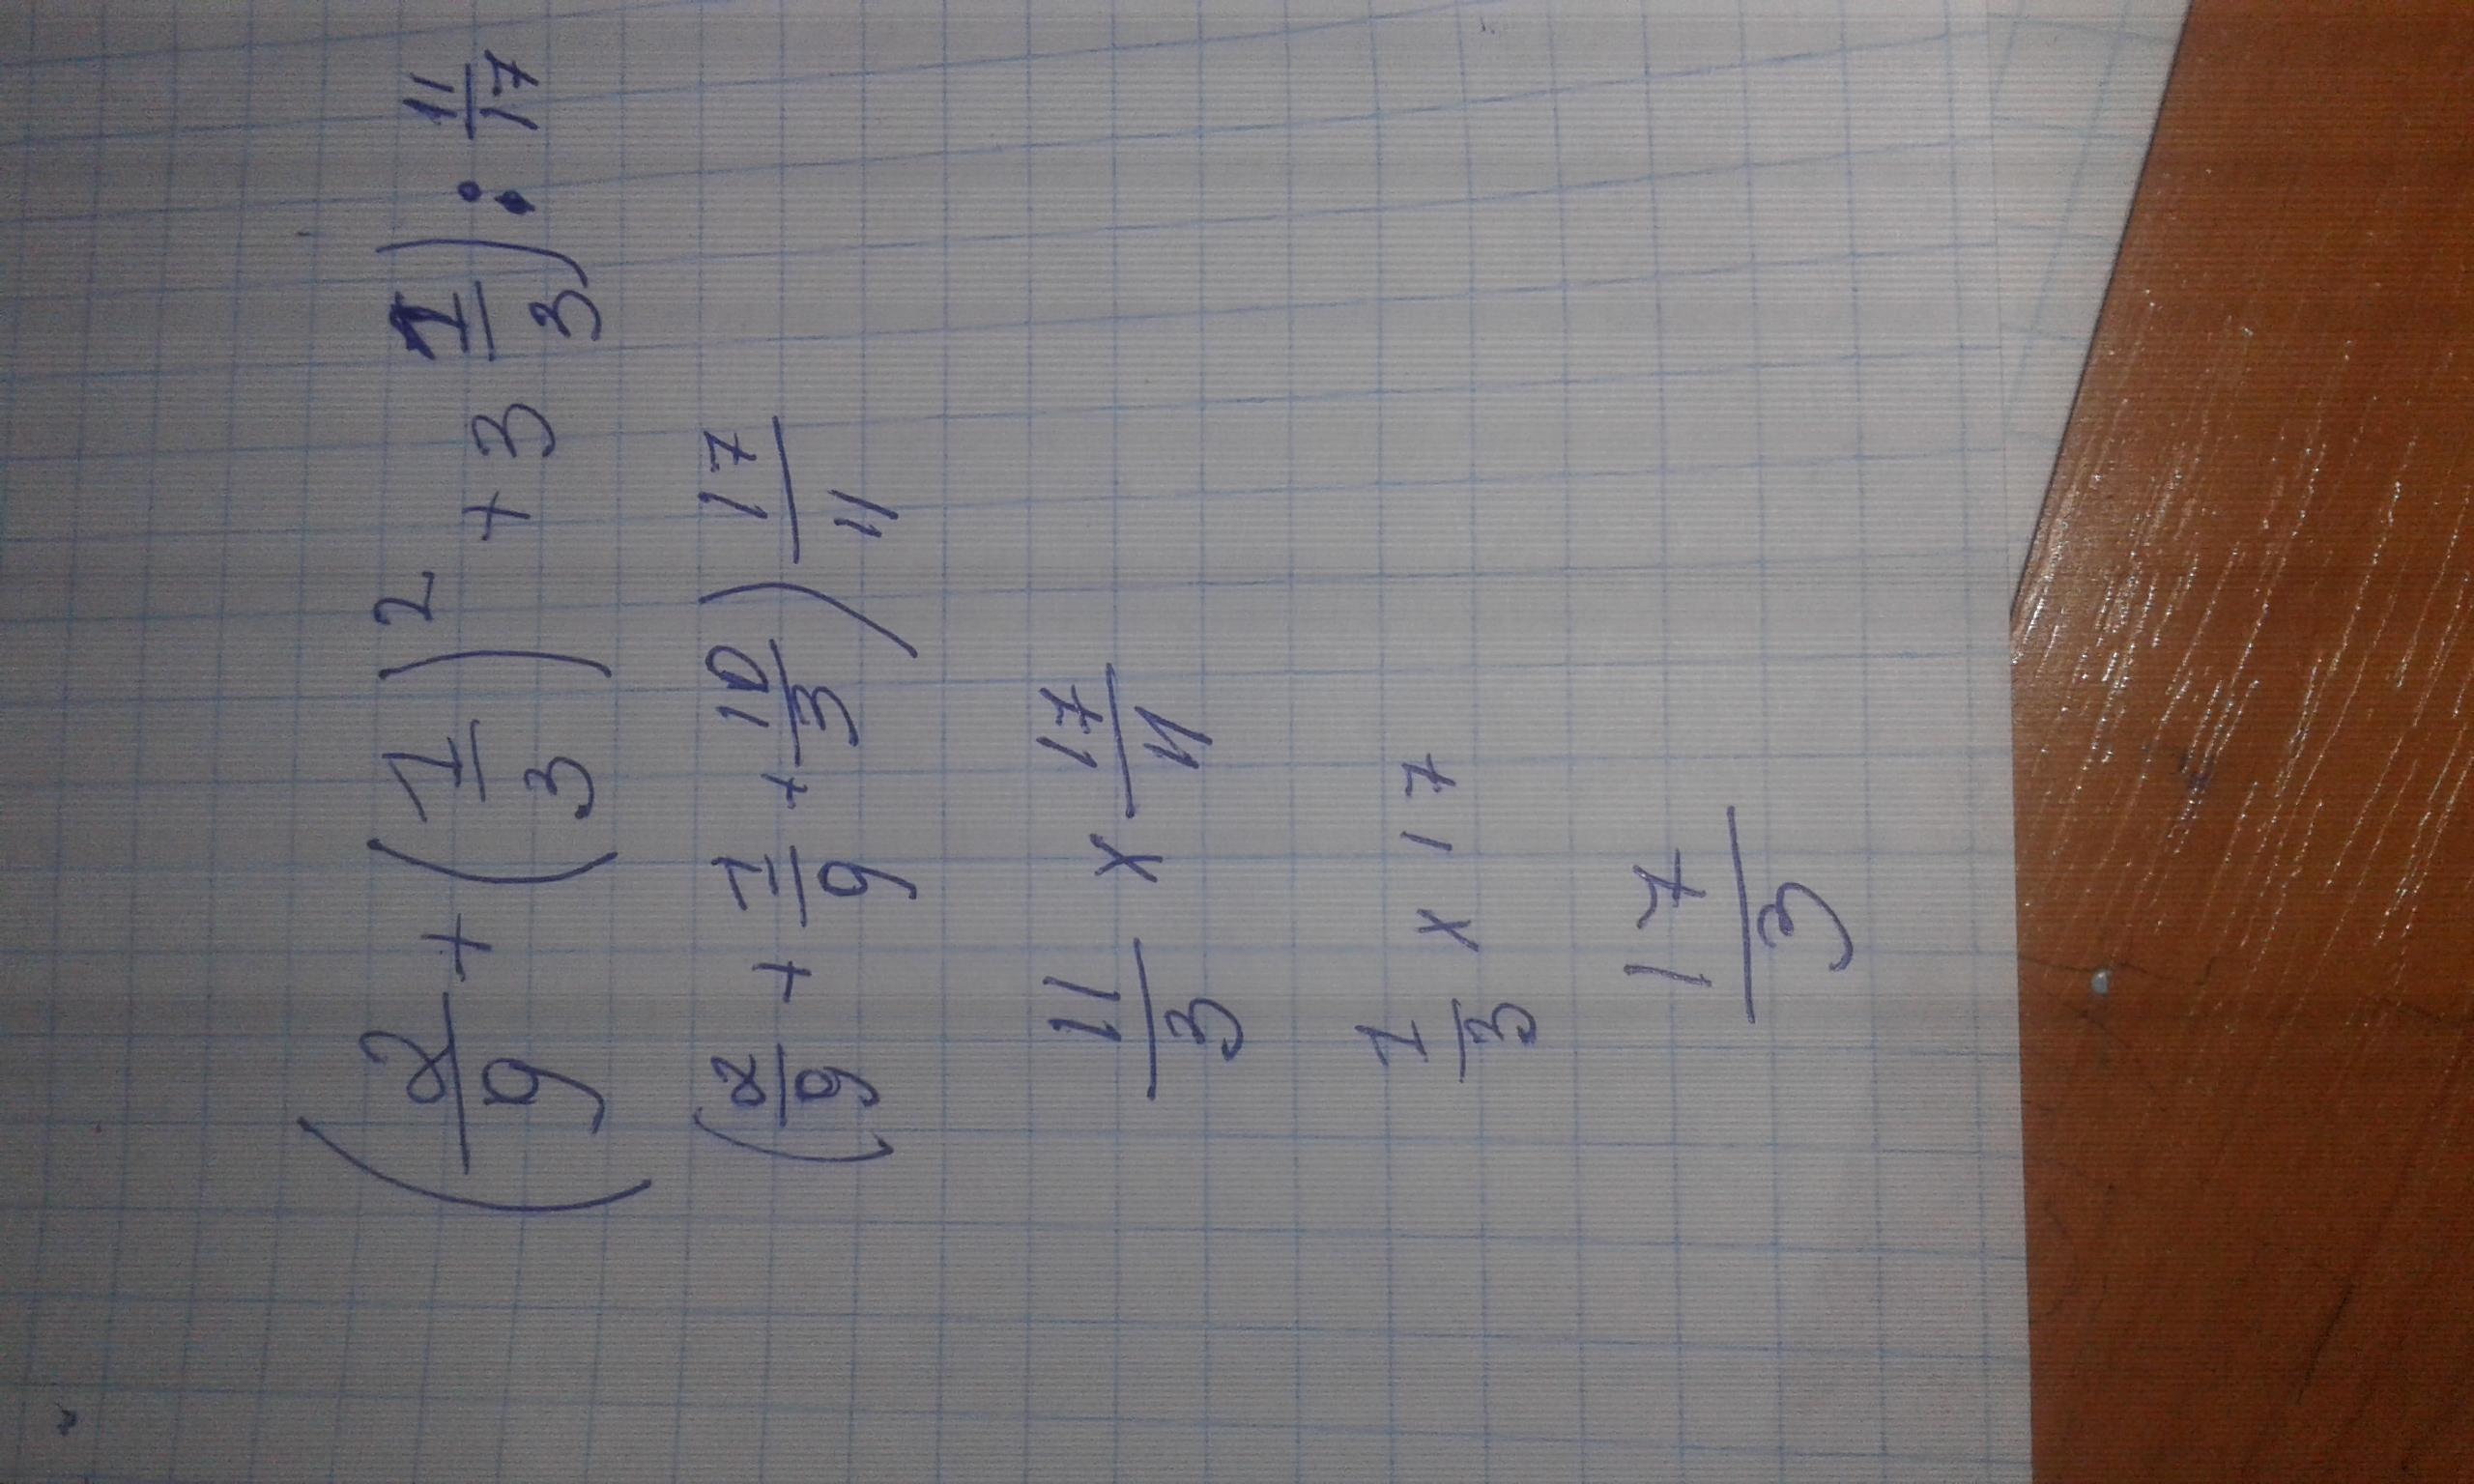 (2/9 + (1/3)² + 3 1/3) : 11/17
(2/9 + 1/9 + 10/3) 17/11
11/3 x 17/11
1/3 x 17
17/3